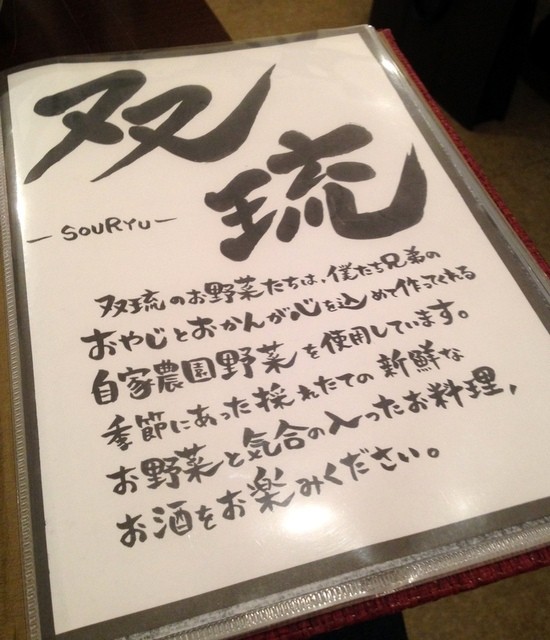 双琉
-SOURYU-
双琉のお野菜たちは、僕たち兄弟の
おやじとおかんが心を込めて作ってくれる
自家農園野菜を使用しています。
季節にあった採れたての新鮮な
お野菜と気合の入ったお料理,
お酒をお楽みください。